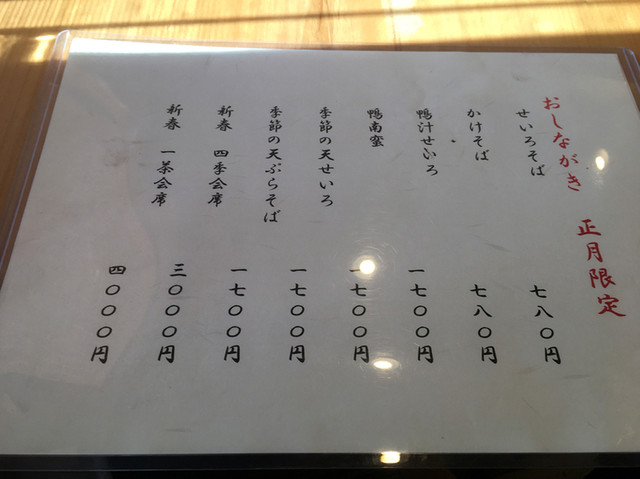 おしながき 正月限定
せいろそば 七八〇円
かけそば 七八〇円
鴨汁せいろ 一七〇〇円
鴨南蛮 一七〇〇円
季節の天せいろ 一七〇〇円
季節の天ぷらそば 一七〇〇円
新春 四季会席 三〇〇〇円
新春 一茶会席 四〇〇〇円